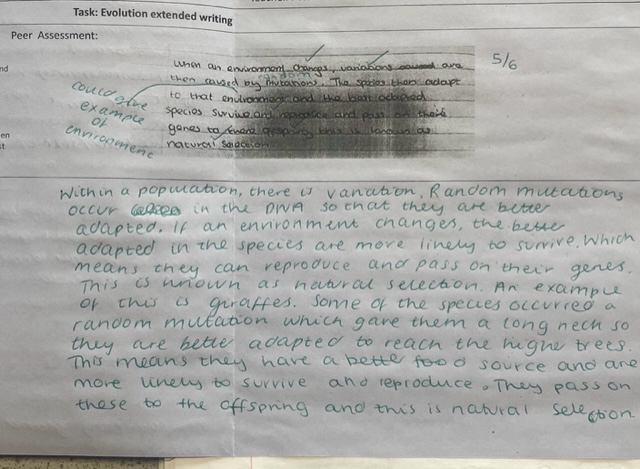 Task: Evolution extended writing
Peer Assessment:
When an environment changes, variations caused are
random
then caused by mutations. The species then adapt
to that environment and the best adapted
species survive and reproduce and pass on their
genes to their offspring, this is known as
natural selection.
5/6
could give
example
of
environment
Within a population, there is variation. Random mutations
occur in the DNA so that they are better
adapted. If an environment changes, the better
adapted in the species are more likely to survive. Which
means they can reproduce and pass on their genes.
This is known as natural selection. An example
of this is giraffes. Some of the species occurred a
random mutation which gave them a long neck so
they are better adapted to reach the highe trees.
This means they have a bette food source and are
more likely to survive and reproduce. They pass on
these to the offspring and this is natural selection